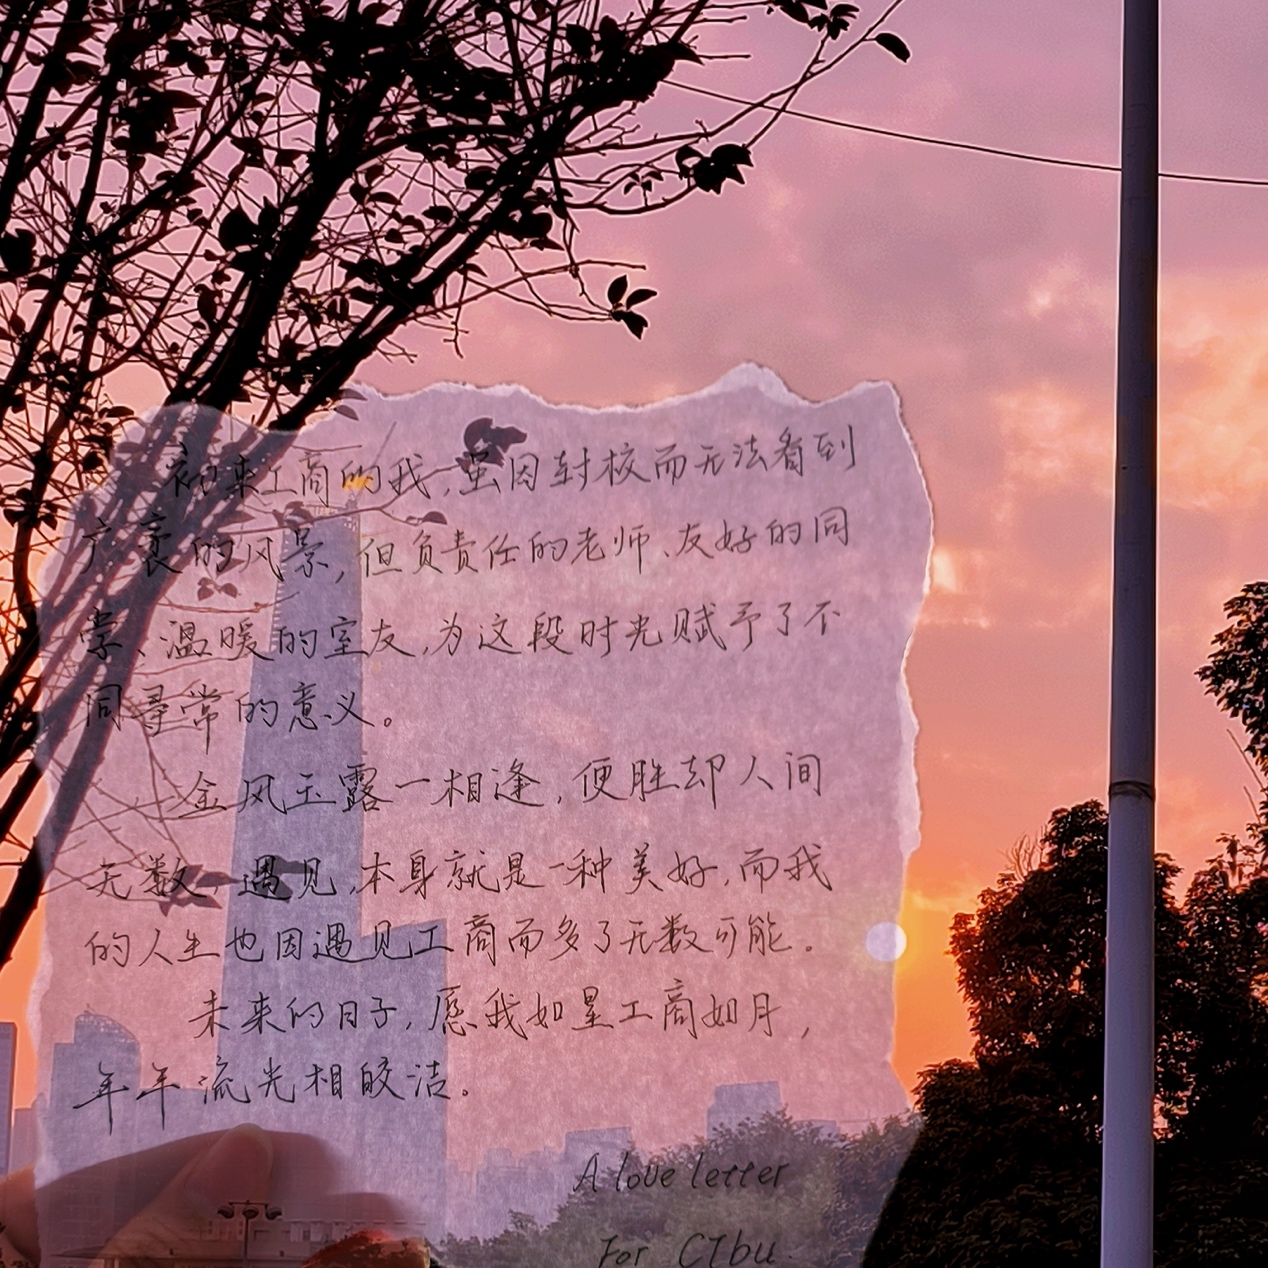 初来工商的我,虽因封校而无法看到
广袤的风景,但负责任的老师、友好的同
学、温暖的室友,为这段时光赋予了不
同寻常的意义。
金风玉露一相逢,便胜却人间
无数。遇见,本身就是一种美好,而我
的人生也因遇见工商而多了无数可能。
未来的日子,愿我如星工商如月,
年年流光相皎洁。
A love letter
For CTbu.